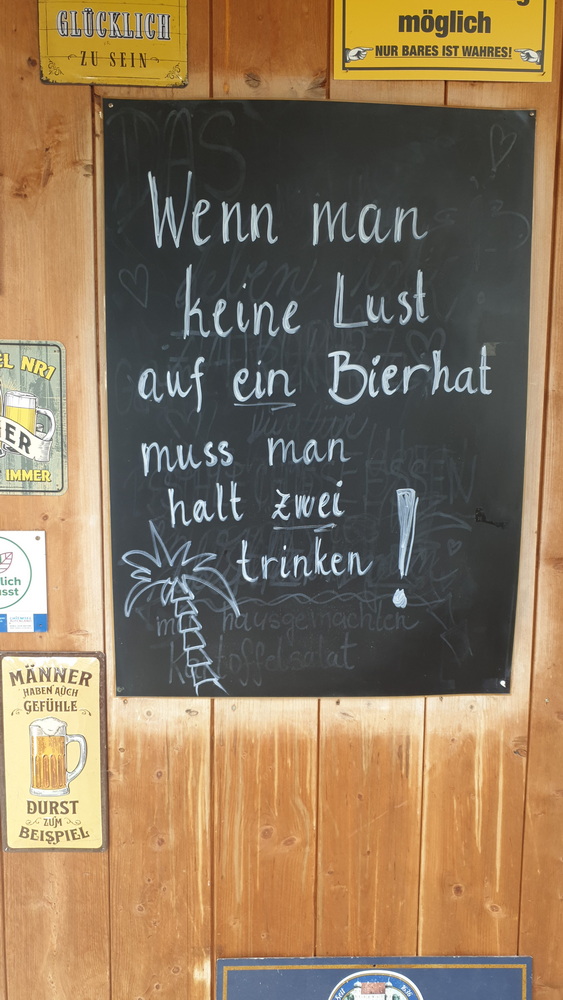 GLÜCKLICH
ZU SEIN
möglich
NUR BARES IST WAHRES!
Wenn man
keine Lust
auf ein Bier hat
muss man
halt zwei
trinken!
DAS
ESSEN
hausgemachten
Kartoffelsalat
NR1
IMMER
MÄNNER
HABEN AUCH
GEFÜHLE
DURST
ZUM
BEISPIEL